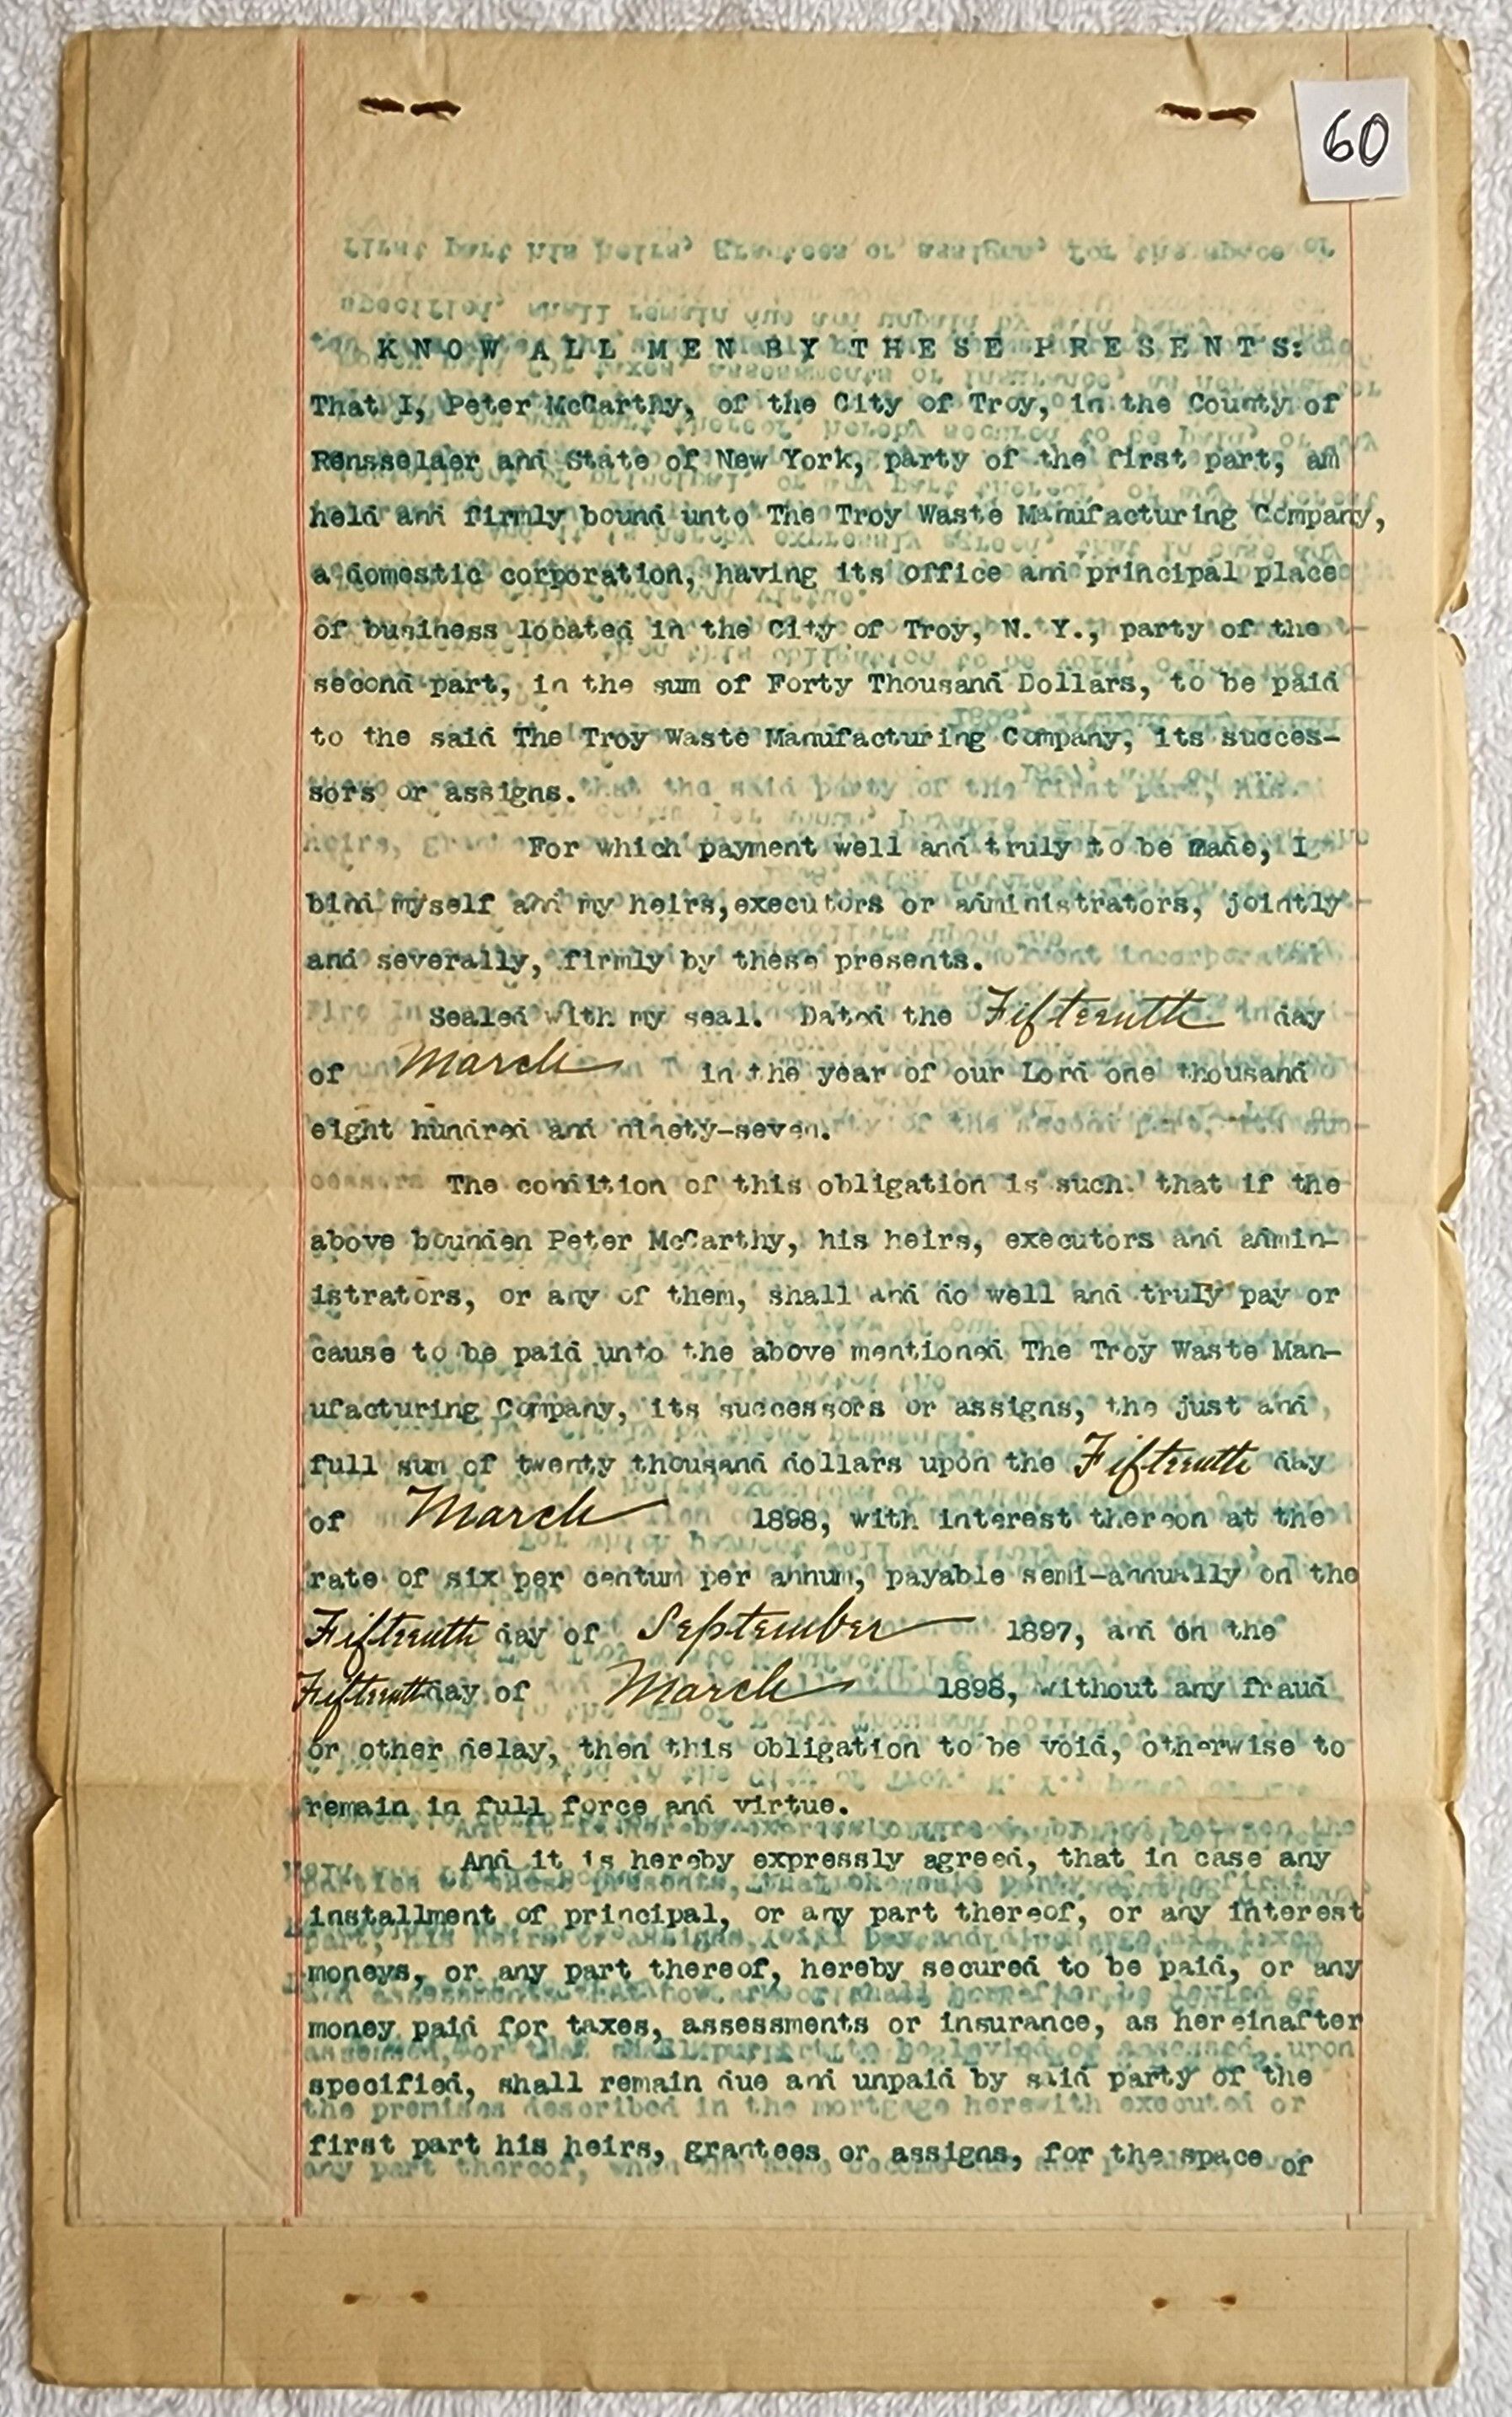 60
KNOW ALL MEN BY THESE PRESENTS:
That I, Peter McCarthy, of the City of Troy, in the County of
Rensselaer and State of New York, party of the first part, am
held and firmly bound unto The Troy Waste Manufacturing Company,
a domestic corporation, having its office and principal place
of business located in the City of Troy, N. Y., party of the
second part, in the sum of Forty Thousand Dollars, to be paid
to the said The Troy Waste Manufacturing Company, its succes-
sors or assigns.
For which payment well and truly to be made, I
bind myself and my heirs, executors or administrators, jointly
and severally, firmly by these presents.
Sealed with my seal. Dated the Fifteenth day
of March in the year of our Lord one thousand
eight hundred and ninety-seven.
The condition of this obligation is such that if the
above bounden Peter McCarthy, his heirs, executors and admin-
istrators, or any of them, shall and do well and truly pay or
cause to be paid unto the above mentioned The Troy Waste Man-
ufacturing Company, its successors or assigns, the just and
full sum of twenty thousand dollars upon the Fifteenth day
of March 1898, with interest thereon at the
rate of six per centum per annum, payable semi-annually on the
Fifteenth day of September 1897, and on the
Fifteenth day of March 1898, without any fraud
or other delay, then this obligation to be void, otherwise to
remain in full force and virtue.
And it is hereby expressly agreed, that in case any
installment of principal, or any part thereof, or any interest
moneys, or any part thereof, hereby secured to be paid, or any
money paid for taxes, assessments or insurance, as hereinafter
specified, shall remain due and unpaid by said party of the
first part his heirs, grantees or assigns, for the space of